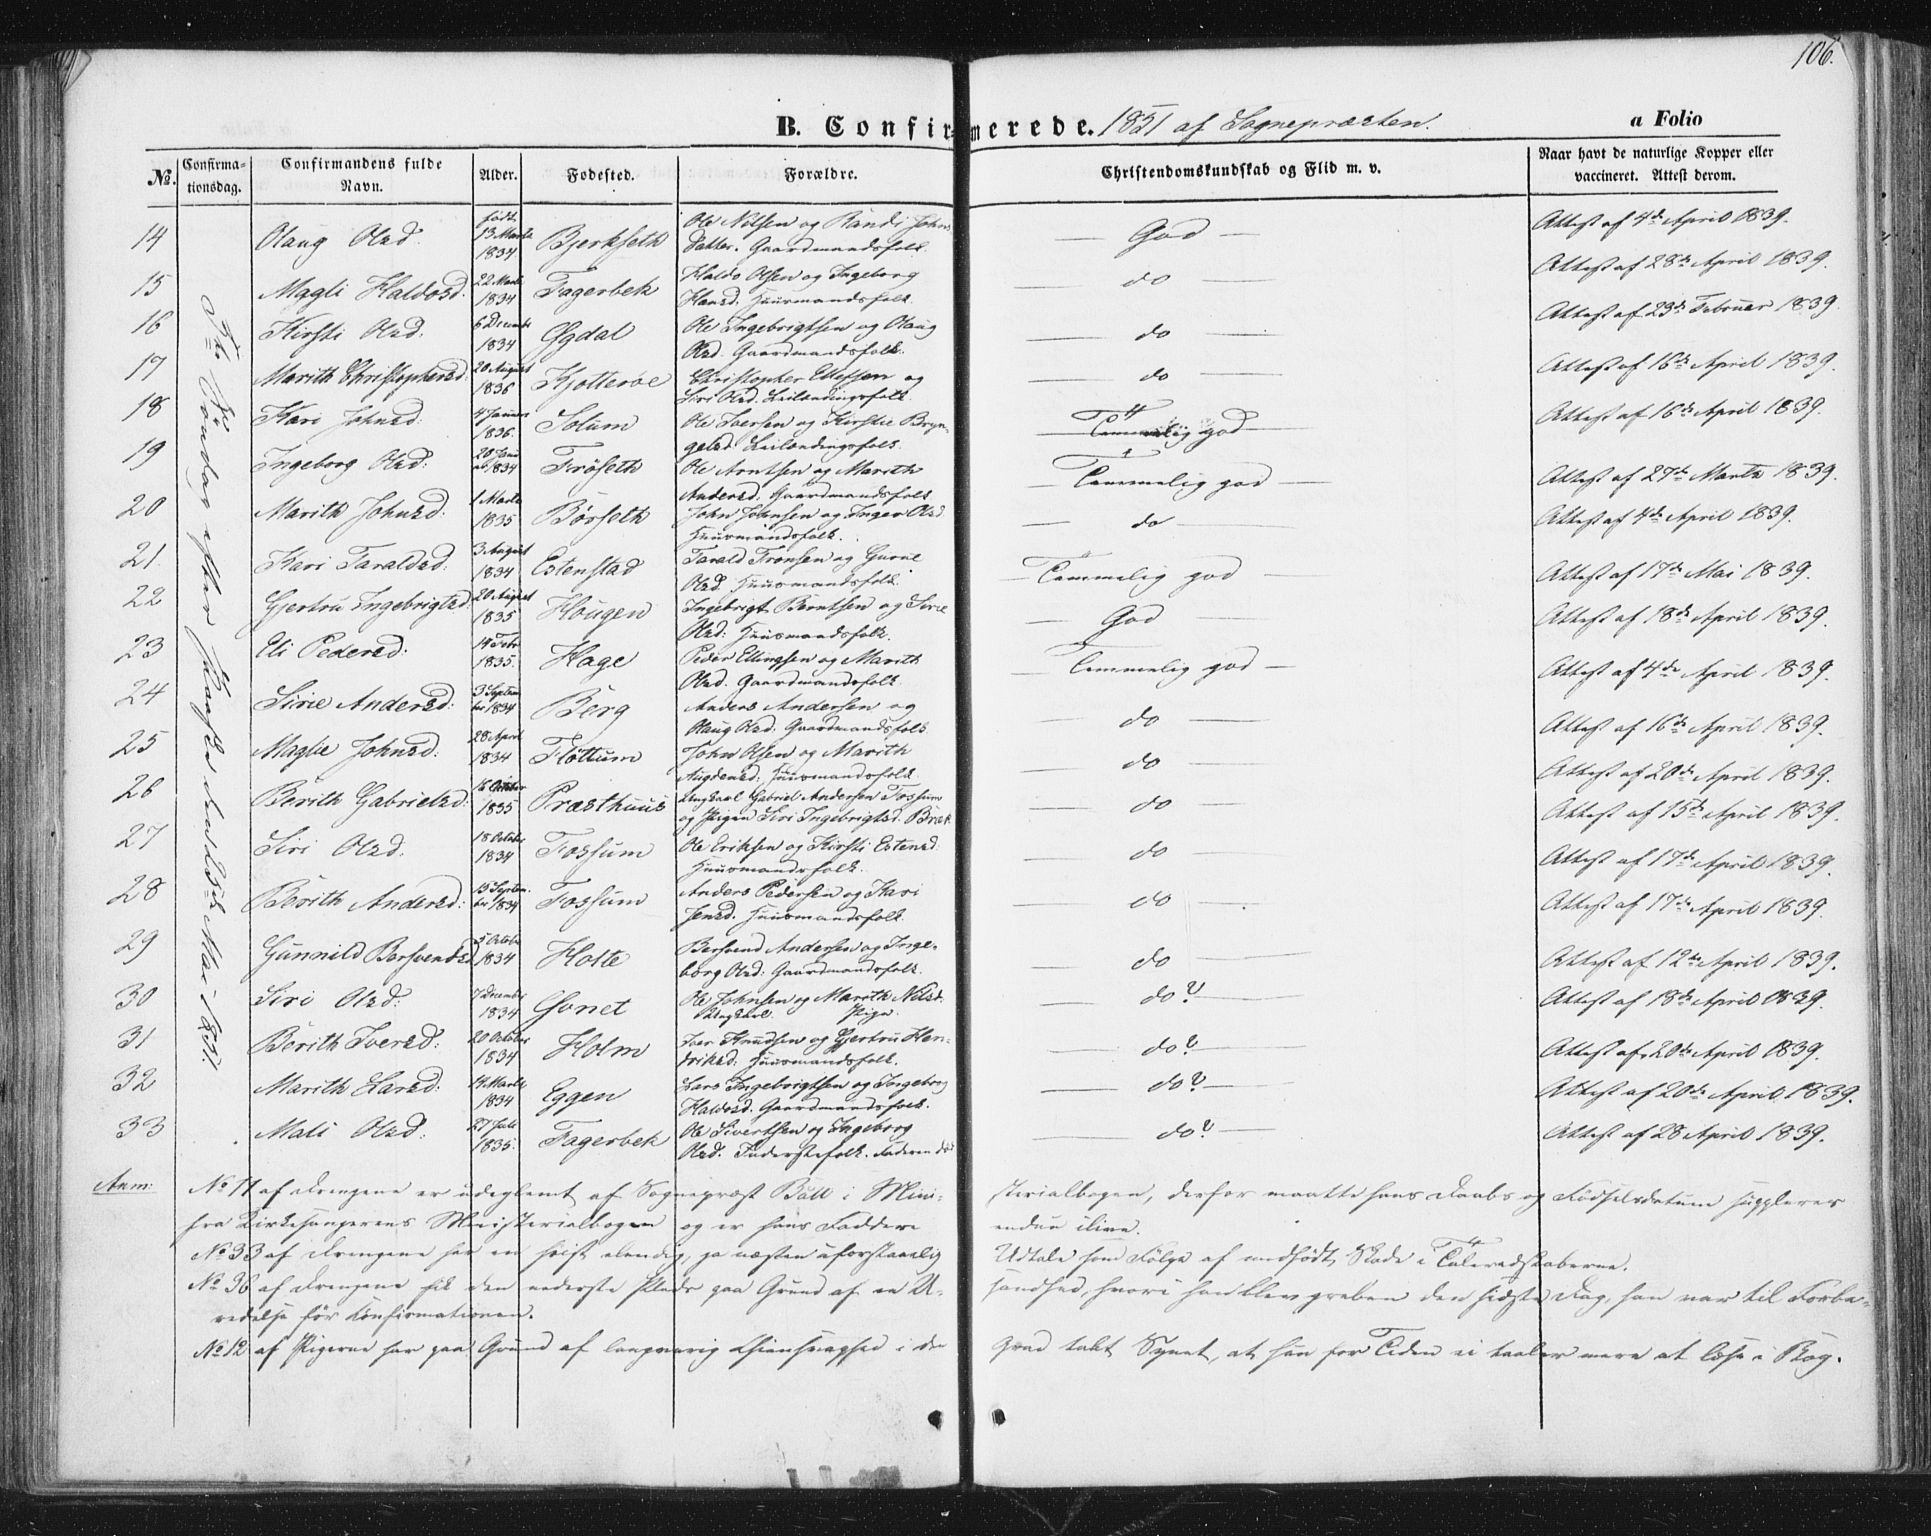 106.
B. Confirmerede. 1851 af Sognepræsten.
a Folio
No.
Confirmationsdag.
Confirmandens fulde Navn.
Alder.
Fødested.
Forældre.
Christendomskundskab og Flid m. v.
Naar havt de naturlige Kopper eller vaccineret. Attest derom.
14 Olaug Olsd. født 13 Marts 1834 Bjerkseth Ole Nilsen og Randi Johns Datter. Gaardmandsfolk. God Attest af 4de April 1839.
15 Magli Haldosd. 22 Marts 1834 Fagerbek Haldo Olsen og Ingeborg Hansd. Huusmandsfolk. do Attest af 28de April 1839.
16 Kirsti Olsd. 6 Decembr 1834 Ogdal Ole Ingebrigtsen og Olaug Olsd. Gaardmandsfolk. do Attest af 23de Februar 1839.
17 Marith Christophersd. 20 August 1836 Kjotterøe Christopher Ellefsen og Siri Olsd. Leilændingsfolk. do Attest af 16de April 1839.
18 Kari Johnsd. 4 Januar 1836. Solum Ole Iversen og Kirstie Bryngelsd. Leilændingsfolk. Temmelig god Attest af 16de April 1839.
19 Ingeborg Olsd. 20 Januar 1834 Frøseth Ole Arntsen og Marith Andersd. Gaardmandsfolk Temmelig god Attest af 27de Marts 1839.
20 Marith Johnsd. 1 Marts 1835 Børseth John Johnsen og Inger Olsd Huusmandsfolk. do Attest af 4de April 1839.
21. Kari Taraldsd. 3 August 1834 Estenstad Tarald Tronsen og Gurue Olsd. Huusmandsfolk. Temmelig god Attest af 17de Mai 1839.
22 Gjertru Ingebrigtsd. 20 August 1835 Hougen Ingebrigt Berntsen og Sirie Olsd: Huusmandsfolk. God Attest af 18de April 1839.
23 Eli Pedersd. 14 Febr 1835. Hage Peder Ellingsen og Marith Olsd. Gaardmandsfolk. Temmelig god Attest af 4de April 1839.
24 Sirie Andersd. 3 Septembr 1834 Berg Anders Andersen og Olaug Olsd. Gaardmandsfolk do Attest af 16de April 1839.
25 Maglie Johnsd. 28 April 1834 Fløttum John Olsen og Marith Augdensd: Huusmandsfolk. do Attest af 20de April 1839.
26 Berith Gabrielsd. 16 October 1835 Præsthuus Ungkarl Gabriel Andersen Fossum og Pigen Siri Ingebrigtsd. Bræk do Attest af 15de April 1839.
27 Siri Olsd. 18 October 1834 Fossum Ole Eriksen og Kirsti Estensd: Huusmandsfolk. do Attest af 17de April 1839.
28 Berith Andersd: 15 Septembr 1834 Fossum Anders Pedersen og Kari Jensd. Huusmandsfolk. do Attest af 17de April 1839.
29 Gunnild Bersvendsd. 5 Octobr 1834 Holte Bersvend Andersen og Ingeborg Olsd: Gaardmandsfolk. do Attest af 12te April 1839.
30 Siri Olsd: 7 December 1834 Gonet Ole Johnsen og Marith Nilsd. Ungkarl. Pige. do? Attest af 18de April 1839.
31 Berith Iversd: 20 October 1834 Holm Iver Knudsen og Gjertru Hendriksd: Huusmandsfolk. do? Attest af 20de April 1839.
32 Marith Larsd: 14 Marts 1834 Eggen Lars Ingebrigtsen og Ingeborg Haldosd. Gaardmandsfolk. do? Attest af 20de April 1839.
33 Mali Olsd: 27 Juli 1835. Fagerbek Ole Sivertsen og Ingeborg Olsd. Inderstefolk. Faderen død do? Attest af 28 April 1839.
5te Søndag efter Paaske den 25de Mai 1851.
Anm: No 11 af Drengene er udeglemt af Sognepræst Bull i Ministerialbogen, derfor maatte hans Daabs og Fødselsdatum suppleres
fra Kirkesangerens Ministerialbogen og er hans Faddere endnu ilive.
No 33 af Drengene har en høist elendig, ja næsten uforstaaelig Udtale som Følge af medfødt Skade i Taleredskaberne.
No 36 af Drengene fik den nederste Plads paa Grund af en Usandhed, hvori han blev greben den sidste Dag, han var til Forberedelse før Konfirmationen.
No 12 af Pigerne har paa Grund af langvarig Øiensvaghed i den Grad tabt Synet, at hun for Tiden ei taaler mere at læse i Bog.